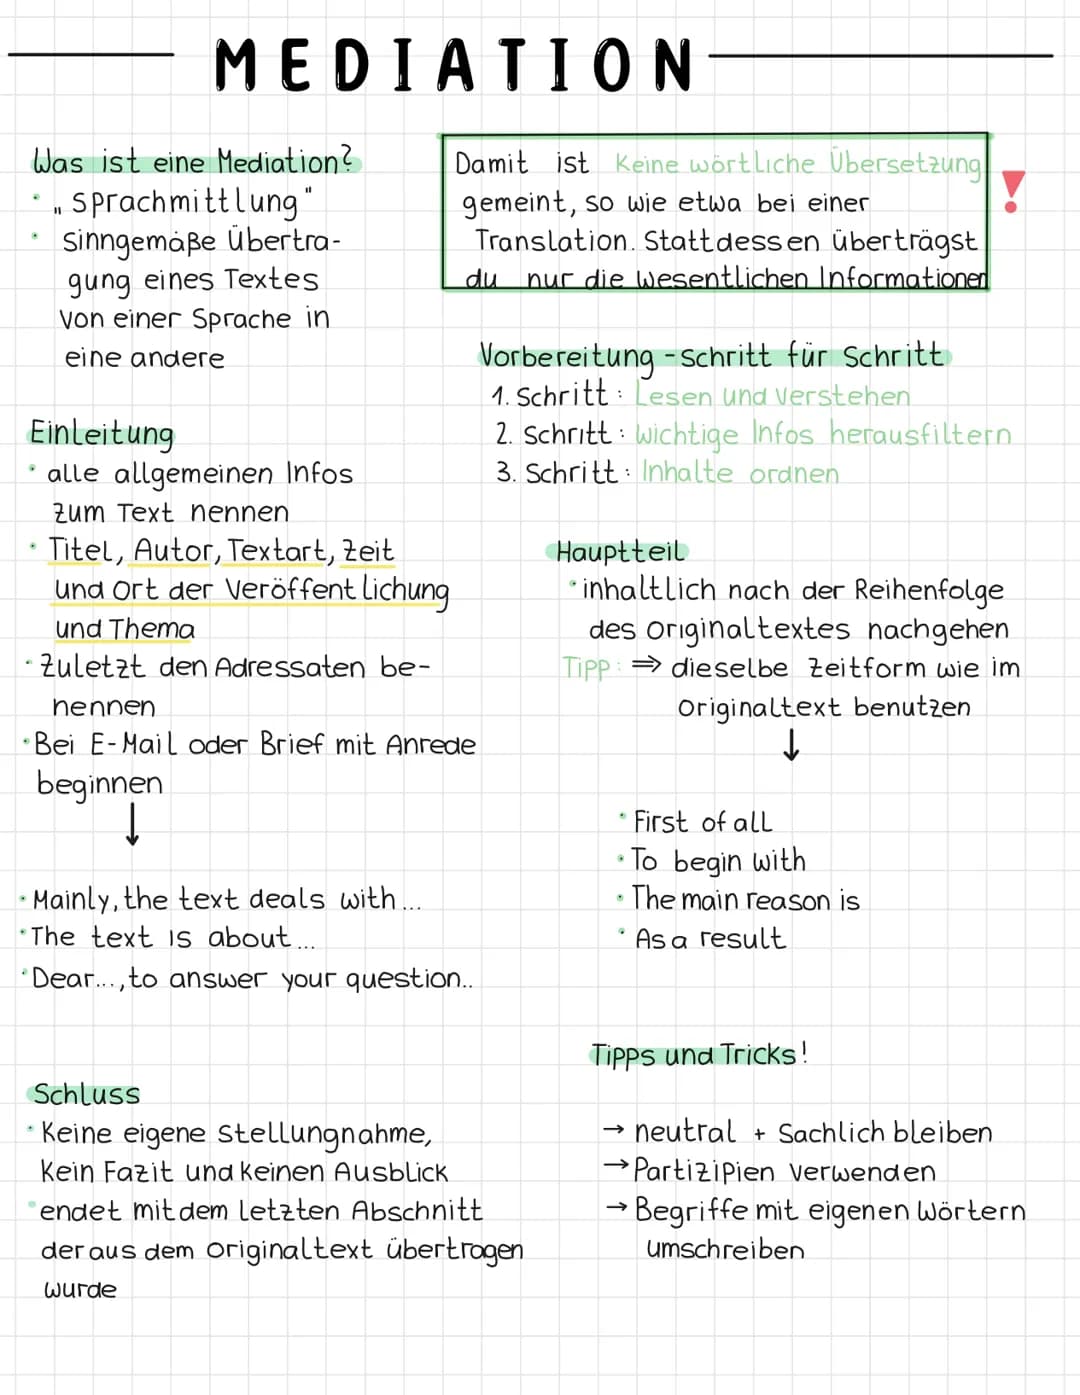 MEDIATION
Was ist eine Mediation?
• „Sprachmittlung"
• sinngemäße Übertra-
gung eines Textes
von einer Sprache in
eine andere
Damit ist keine wörtliche Übersetzung
gemeint, so wie etwa bei einer
Translation. Stattdessen überträgst
du nur die wesentlichen Informationen
!
Vorbereitung - Schritt für Schritt
1. Schritt: Lesen und verstehen
2. Schritt: wichtige Infos herausfiltern
3. Schritt: Inhalte ordnen
Einleitung
• alle allgemeinen Infos
zum Text nennen
• Titel, Autor, Textart, Zeit
und Ort der Veröffentlichung
und Thema
• Zuletzt den Adressaten be-
nennen
• Bei E-Mail oder Brief mit Anrede
beginnen
↓
• Mainly, the text deals with...
• The text is about...
• Dear..., to answer your question..
Hauptteil
• inhaltlich nach der Reihenfolge
des Originaltextes nachgehen
Tipp: ⇒ dieselbe Zeitform wie im
Originaltext benutzen
↓
• First of all
• To begin with
• The main reason is
• As a result
Schluss
• Keine eigene Stellungnahme,
kein Fazit und keinen Ausblick
• endet mit dem letzten Abschnitt
der aus dem Originaltext übertragen
wurde
Tipps und Tricks!
→ neutral + sachlich bleiben
→ Partizipien verwenden
→ Begriffe mit eigenen Wörtern
umschreiben